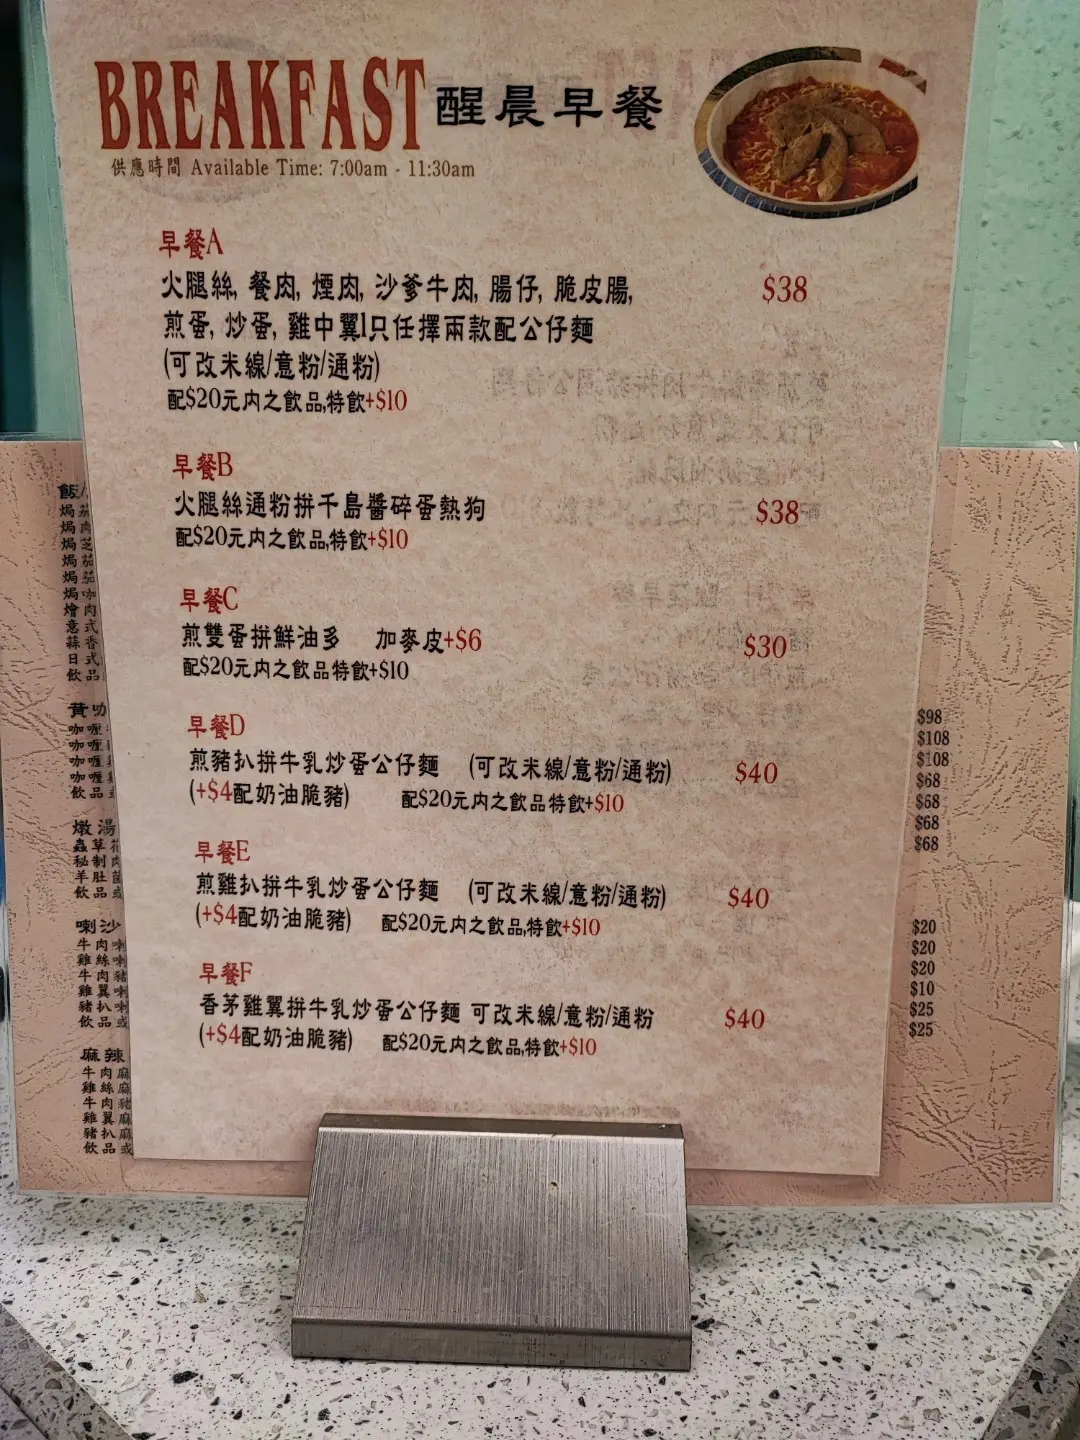 BREAKFAST 醒晨早餐
供應時間 Available Time: 7:00am - 11:30am
早餐A
火腿絲, 餐肉, 煙肉, 沙爹牛肉, 腸仔, 脆皮腸, $38
煎蛋, 炒蛋, 雞中翼1只任擇兩款配公仔麵
(可改米線/意粉/通粉)
配$20元內之飲品,特飲+$10
早餐B
火腿絲通粉拼千島醬碎蛋熱狗 $38
配$20元內之飲品,特飲+$10
早餐C
煎雙蛋拼鮮油多 加麥皮+$6 $30
配$20元內之飲品特飲+$10
早餐D
煎豬扒拼牛乳炒蛋公仔麵 (可改米線/意粉/通粉) $40
(+$4配奶油脆豬) 配$20元內之飲品特飲+$10
早餐E
煎雞扒拼牛乳炒蛋公仔麵 (可改米線/意粉/通粉) $40
(+$4配奶油脆豬) 配$20元內之飲品,特飲+$10
早餐F
香茅雞翼拼牛乳炒蛋公仔麵 可改米線/意粉/通粉 $40
(+$4配奶油脆豬) 配$20元內之飲品,特飲+$10
飯/
焗茄
焗肉
焗芝
焗茄
焗茄
燴咖
意肉
蒜式
日香
飲式
品
黃咖
咖喱
咖喱
咖喱
咖喱
飲品
燉湯
蟲草
秘制
羊肚
飲品或
喇沙
牛肉喇
雞絲喇
牛肉豬
雞翼喇
豬扒喇
飲品或
麻辣
牛肉麻
雞絲麻
牛肉豬
雞翼麻
豬扒麻
飲品或
$98
$108
$108
$68
$68
$68
$68
$20
$20
$20
$10
$25
$25